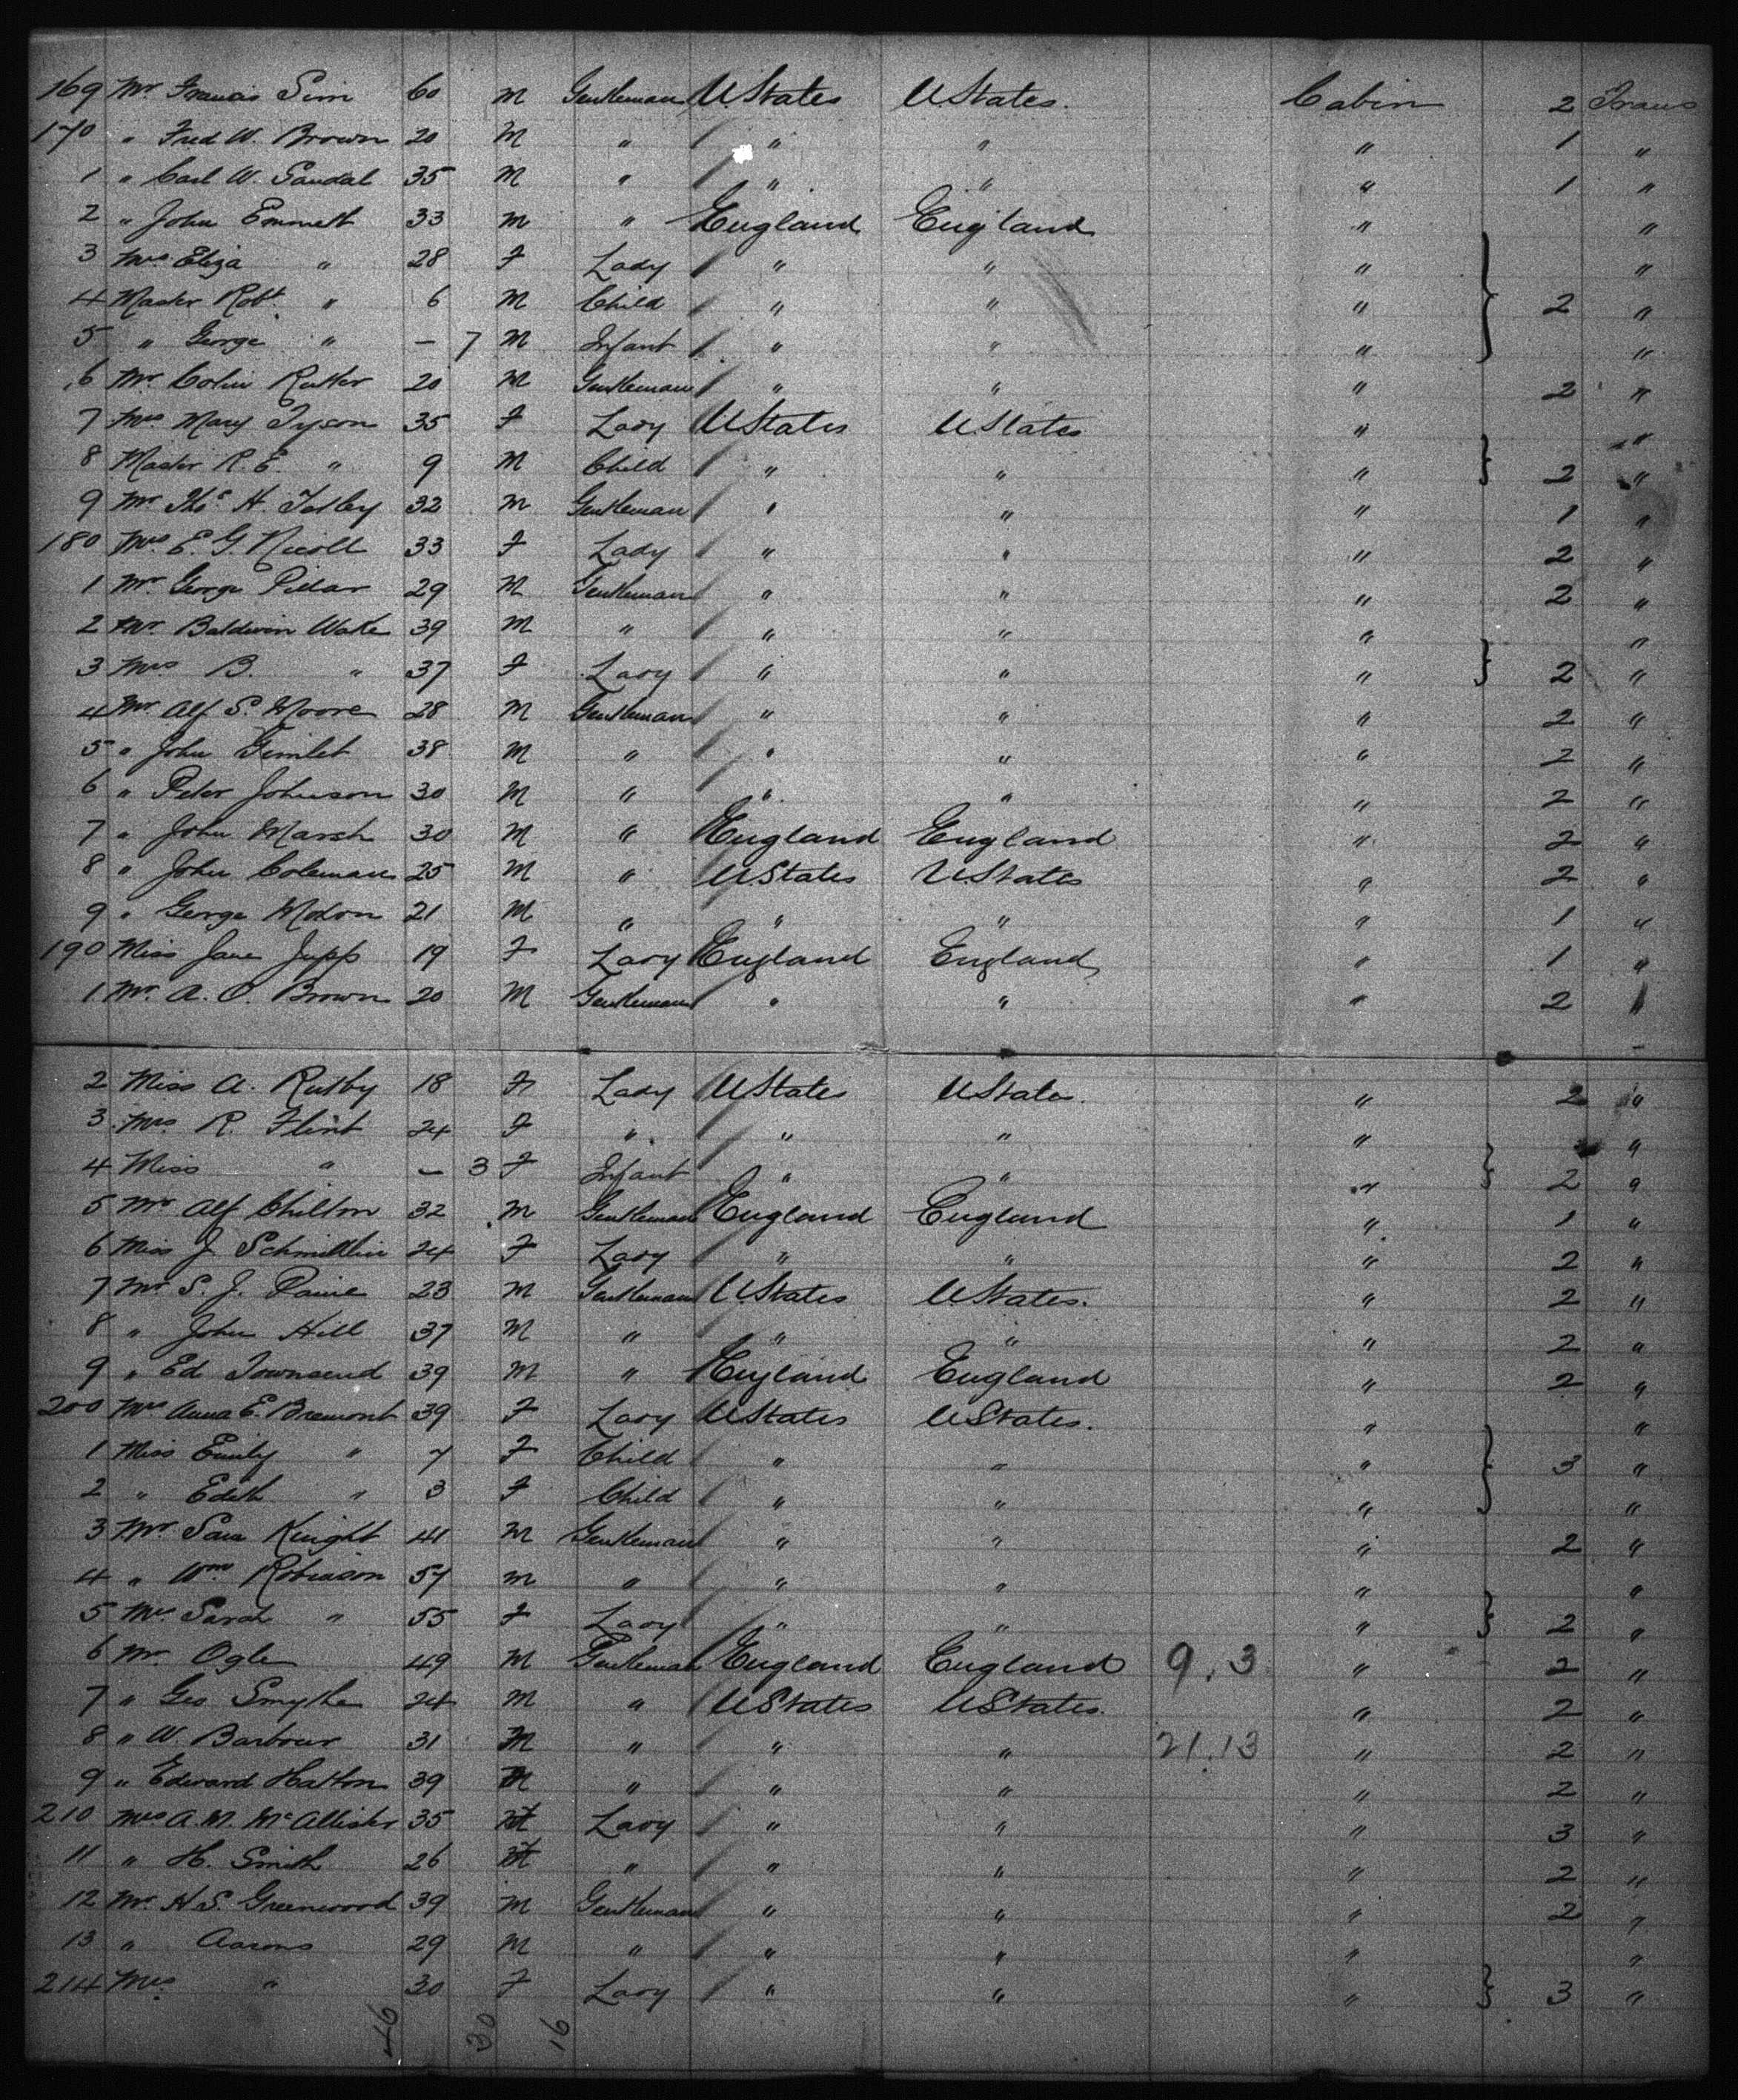 169 Mr Francis Sim 60 M Gentleman UStates UStates. Cabin 2 Trans
170 " Fred W. Brown 20 M " " " " 1 "
1 " Carl W. Sandal 35 M " " " " 1 "
2 " John Emmett 33 M " England England " "
3 Mrs Eliza " 28 F Lady " " " "
4 Master Robt. " 6 M Child " " " 2 "
5 " George " – 7 M Infant " " " "
6 Mr. Colin Rutter 20 M Gentleman " " " 2 "
7 Mrs Mary Tyson 35 F Lady UStates UStates " "
8 Master R. E. " 9 M Child " " " 2 "
9 Mr Thos H. 32 M Gentleman " " " 1 "
180 Mrs E. G. Nicoll 33 F Lady " " " 2 "
1 Mr. George Pillar 29 M Gentleman " " " 2 "
2 Mr. Baldwin Wake 39 M " " " " "
3 Mrs B. " 37 F Lady " " " 2 "
4 Mr. Alf S. Moore 28 M Gentleman " " " 2 "
5 " John Gimlet 38 M " " " " 2 "
6 " Peter Johnson 30 M " " " " 2 "
7 " John Marsh 30 M " England England " 2 "
8 " John Coleman 25 M " U.States U.States " 2 "
9 " George Moxon 21 M " " " " 1 "
190 Miss Jane Jupp 19 F Lady England England " 1 "
1 Mr. A. O. Brown 20 M Gentleman " " " 2 "
2 Miss A. 18 F Lady UStates UState. " 2 "
3 Mrs R. Flint 24 F " " " " "
4 Miss " – 3 F Infant " " " 2 "
5 Mr Alf Chilton 32 M Gentleman England England " 1 "
6 Miss J. 24 F Lady " " " 2 "
7 Mr S. J. Paine 23 M Gentleman UStates UStates. " 2 "
8 " John Hill 37 M " " " " 2 "
9 " Ed Townsend 39 M " England England " 2 "
200 Mrs Anna E. Bremont 39 F Lady UStates UStates. " "
1 Miss Emily " 7 F Child " " " 3 "
2 " Edith " 3 F Child " " " "
3 Mr Sam Knight 41 M Gentleman " " " 2 "
4 " Wm Robinson 57 M " " " " "
5 Mrs Sarah " 55 F Lady " " " 2 "
6 Mr. Ogle 49 M Gentleman England England 9.3 " 2 "
7 " Geo Smythe 24 M " UStates UStates. " 2 "
8 " W. Barbour 31 M " " " 21.13 " 2 "
9 " Edward Hatton 39 M " " " " 2 "
210 Mrs A. M. McAllister 35 F Lady " " " 3 "
11 " H. Smith 26 F " " " " 2 "
12 Mr. H S. Greenwood 39 M Gentleman " " " 2 "
13 " Aarons 29 M " " " " "
214 Mrs. " 30 F Lady " " " 3 "
46 30 16